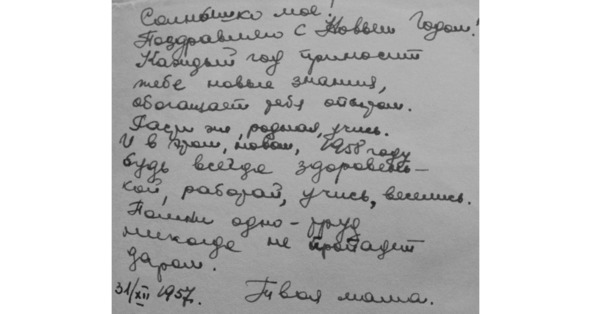 Солнышко мое!
Поздравляю с Новым Годом!
Каждый год приносит
тебе новые знания,
обогащает тебя опытом.
Расти же, родная, учись.
И в этом, новом, 1958 году
будь всегда здоровень-
кой, работай, учись, веселись.
Помни одно - труд
никогда не пропадет
даром.
31/XII 1957. Твоя мама.